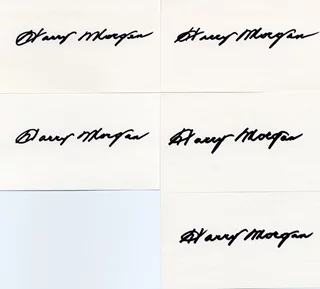 Harry Morgan
Harry Morgan
Harry Morgan
Harry Morgan
Harry Morgan